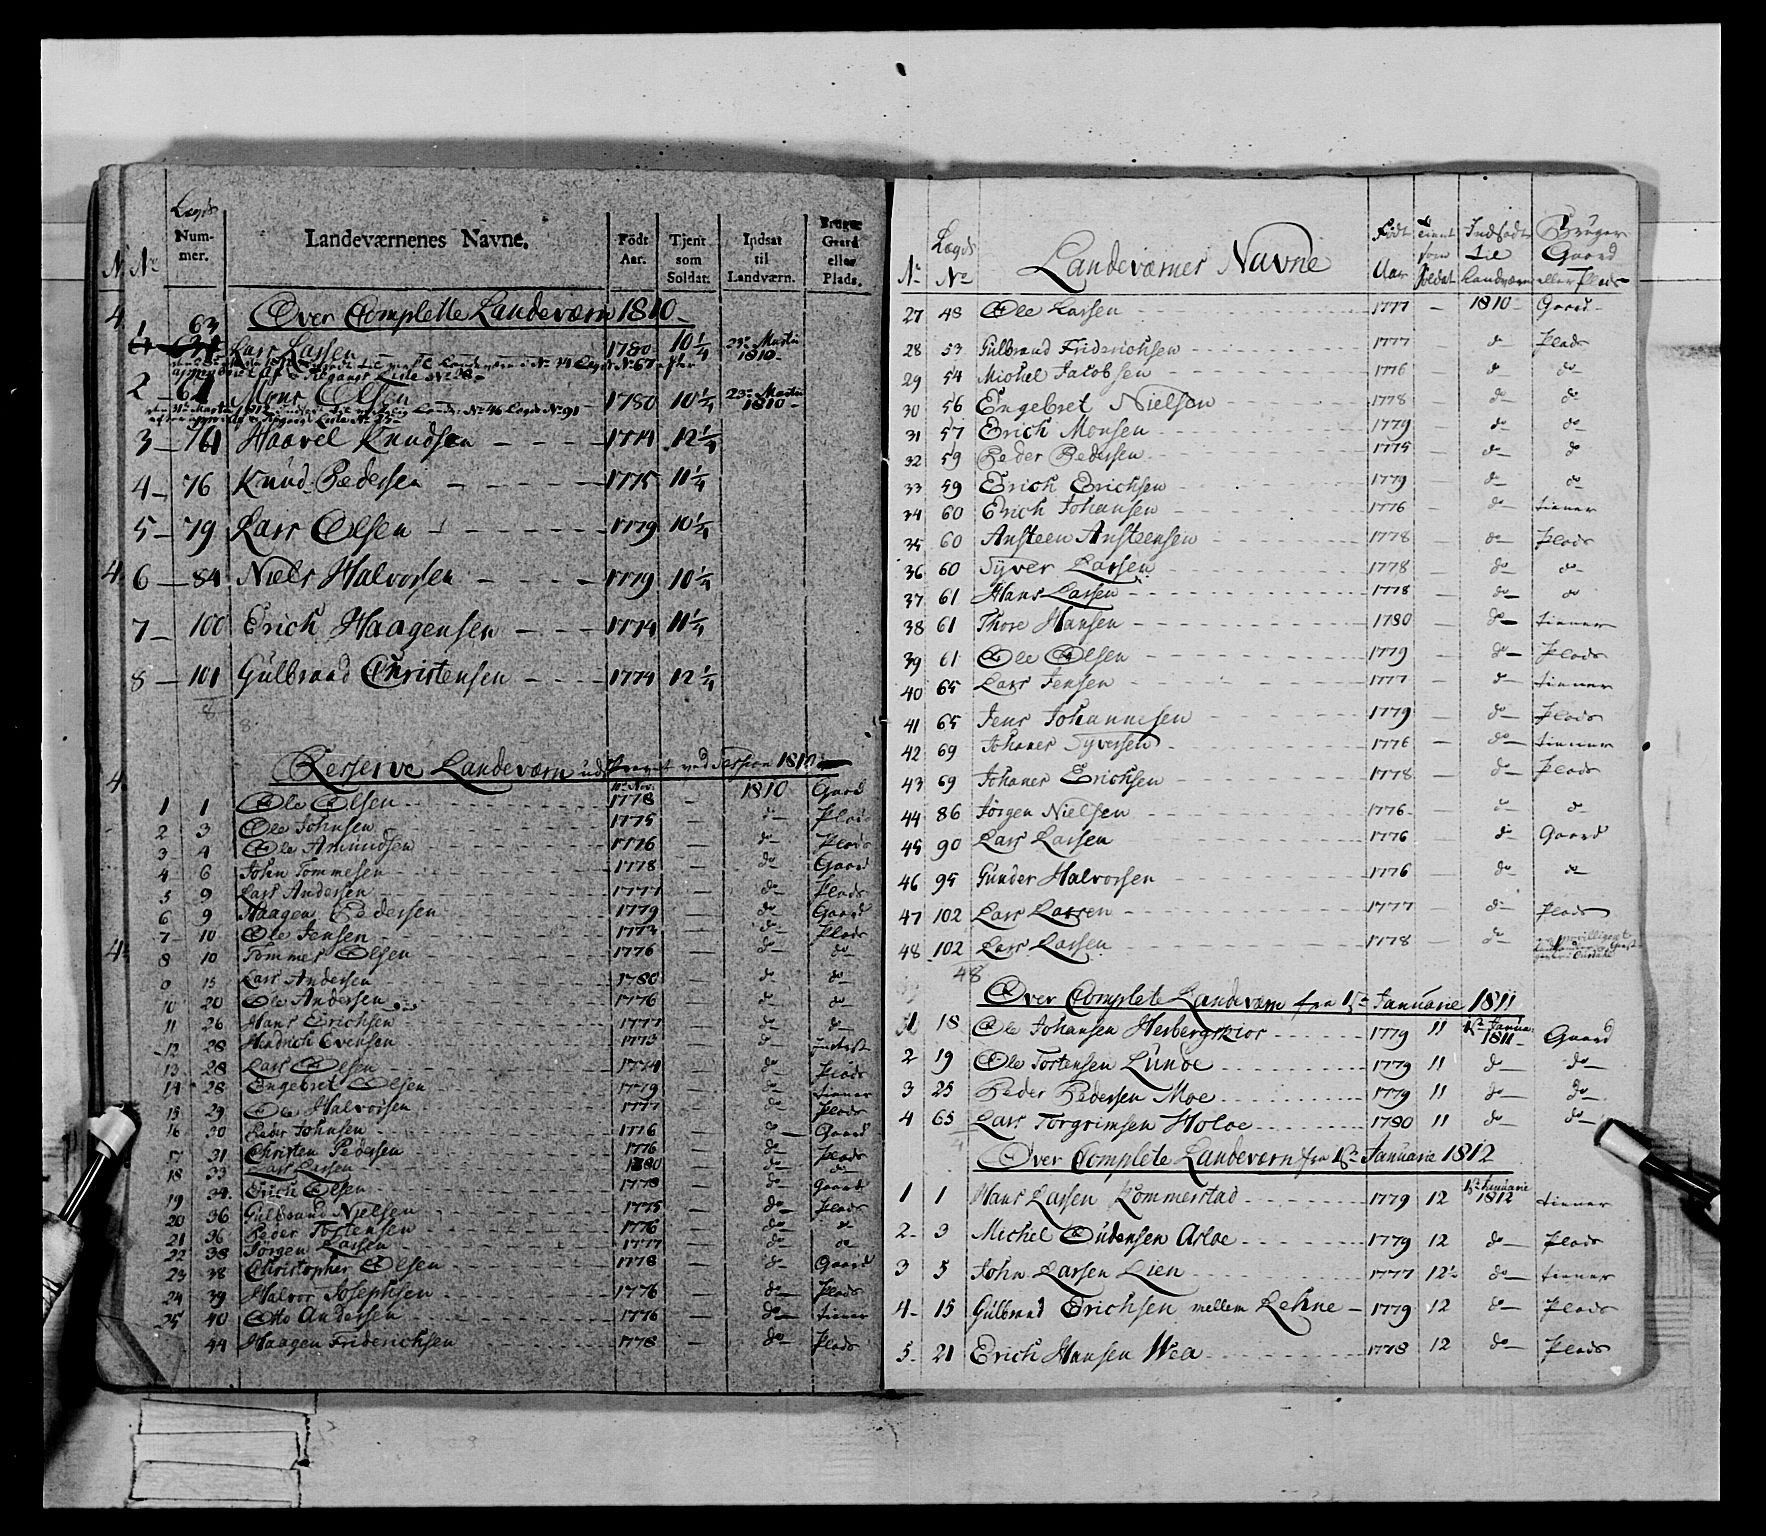 N. No. Lægds Num-mer. Landeværnenes Navne. Födt Aar. Tjent som Soldat. Indsat til Landværn. Bruger Gaard eller Plads.
4. Over Complette Landeværn 1810
1 63 Lars Larsen 1780 10 1/4 23de Martii 1810
2 61 Mons Olsen 1780 10 1/4 23de Martii 1810
3 76 Haavel Knudsen 1774 12 1/4
4 76 Knud Pedersen 1775 11 1/4
5 79 Lars Olsen 1779 10 1/4
4. 6 84 Niels Halvorsen 1779 10 1/4
7 100 Erich Haagensen 1774 11 1/4
8 101 Gulbrand Christensen 1774 12 1/4
8 8
4 Reserve Landeværn udskrevet ved Session 1810
1 1 Ole Olsen 1778 — 1810 Gaard
2 3 Ole Johnsen 1775 — do Plads
3 4 Ole Amundsen 1776 — do Plads
4 6 John Tommesen 1778 — do Gaard
5 9 Lars Andersen 1777 — do Plads
6 9 Haagen Pedersen 1779 — do Gaard
7 10 Ole Jensen 1773 — do Plads
4 8 10 Tommes Olsen 1776 — do do
9 15 Lars Andersen 1780 — do do
10 20 Ole Andersen 1776 — do do
11 26 Hans Erichsen 1777 — do do
12 28 Hindrich Evensen 1773 — do
13 28 Lars Olsen 1774 — do Plads
14 28 Engebret Olsen 1779 — do tiener
15 29 Ole Halvorsen 1777 — do Plads
16 30 Peder Johnsen 1776 — do Gaard
17 31 Christen Pedersen 1776 — do Plads
18 33 Lars Larsen 1780 — do do
19 34 Erich Olsen 1778 — do Gaard
20 36 Gulbrand Nielsen 1775 — do Plads
21 36 Peder Tostensen 1776 — do do
22 38 Jörgen Larsen 1777 — do do
23 38 Christopher Olsen 1778 — do Gaard
24 39 Halvor Josephsen 1776 — do Plads
25 40 Otto Andersen 1776 — do tiener
44 Haagen Friderichsen 1778 — do Plads
No Lægds No Landeværnes Navne Födt Aar tient som Soldat Indsadt til Landværn Bruger Gaard eller Plads
27 48 Ole Larsen 1777 — 1810 Gaard
28 53 Gulbrand Friderichsen 1777 — do Plads
29 54 Michel Jacobsen 1776 — do do
30 56 Engebret Nielsen 1778 — do do
31 57 Erich Monsen 1779 — do do
32 59 Peder Pedersen 1775 — do do
33 59 Erich Erichsen 1779 — do do
34 60 Erich Johansen 1776 — do tiener
35 60 Ansteen Ansteensen 1778 — do Plads
36 60 Syver Larsen 1778 — do do
37 61 Hans Larsen 1778 — do do
38 61 Thore Hansen 1780 — do tiener
39 61 Ole Olsen 1779 — do Plads
40 65 Lars Jensen 1777 — do tiener
41 65 Jens Johannesen 1779 — do Plads
42 69 Johanes Syversen 1776 — do tiener
43 69 Johanes Erichsen 1778 — do Plads
44 86 Jörgen Nielsen 1776 — do do
45 90 Lars Larsen 1776 do Gaard
46 95 Gunder Halvorsen 1776 — do do
47 102 Lars Larsen 1777 — do Plads
48 102 Lars Larsen 1778 — do
48
Over Complete Landeværn fra 1ste Januarie 1811
1 18 Ole Johansen Herbergskior 1779 11 1ste Janua: 1811 Gaard
2 19 Ole Tostensen Lunde 1779 11 do do
3 25 Peder Pedersen Moe 1779 11 do do
4 65 Lars Torgrimsen Holoe 1780 11 do do
4
Over Complete Landeværn fra 1ste Januarie 1812
1 1 Hans Larsen Kommerstad 1779 12 1ste Januarie 1812 tiener
2 3 Michel Oudensen Asloe 1779 12 do Plads
3 5 John Larsen Lien 1777 12 1/2 do tiener
4 15 Gulbrand Erichsen mellem Lehne 1779 12 do Plads
5 21 Erich Hansen Wea 1778 12 do Plads